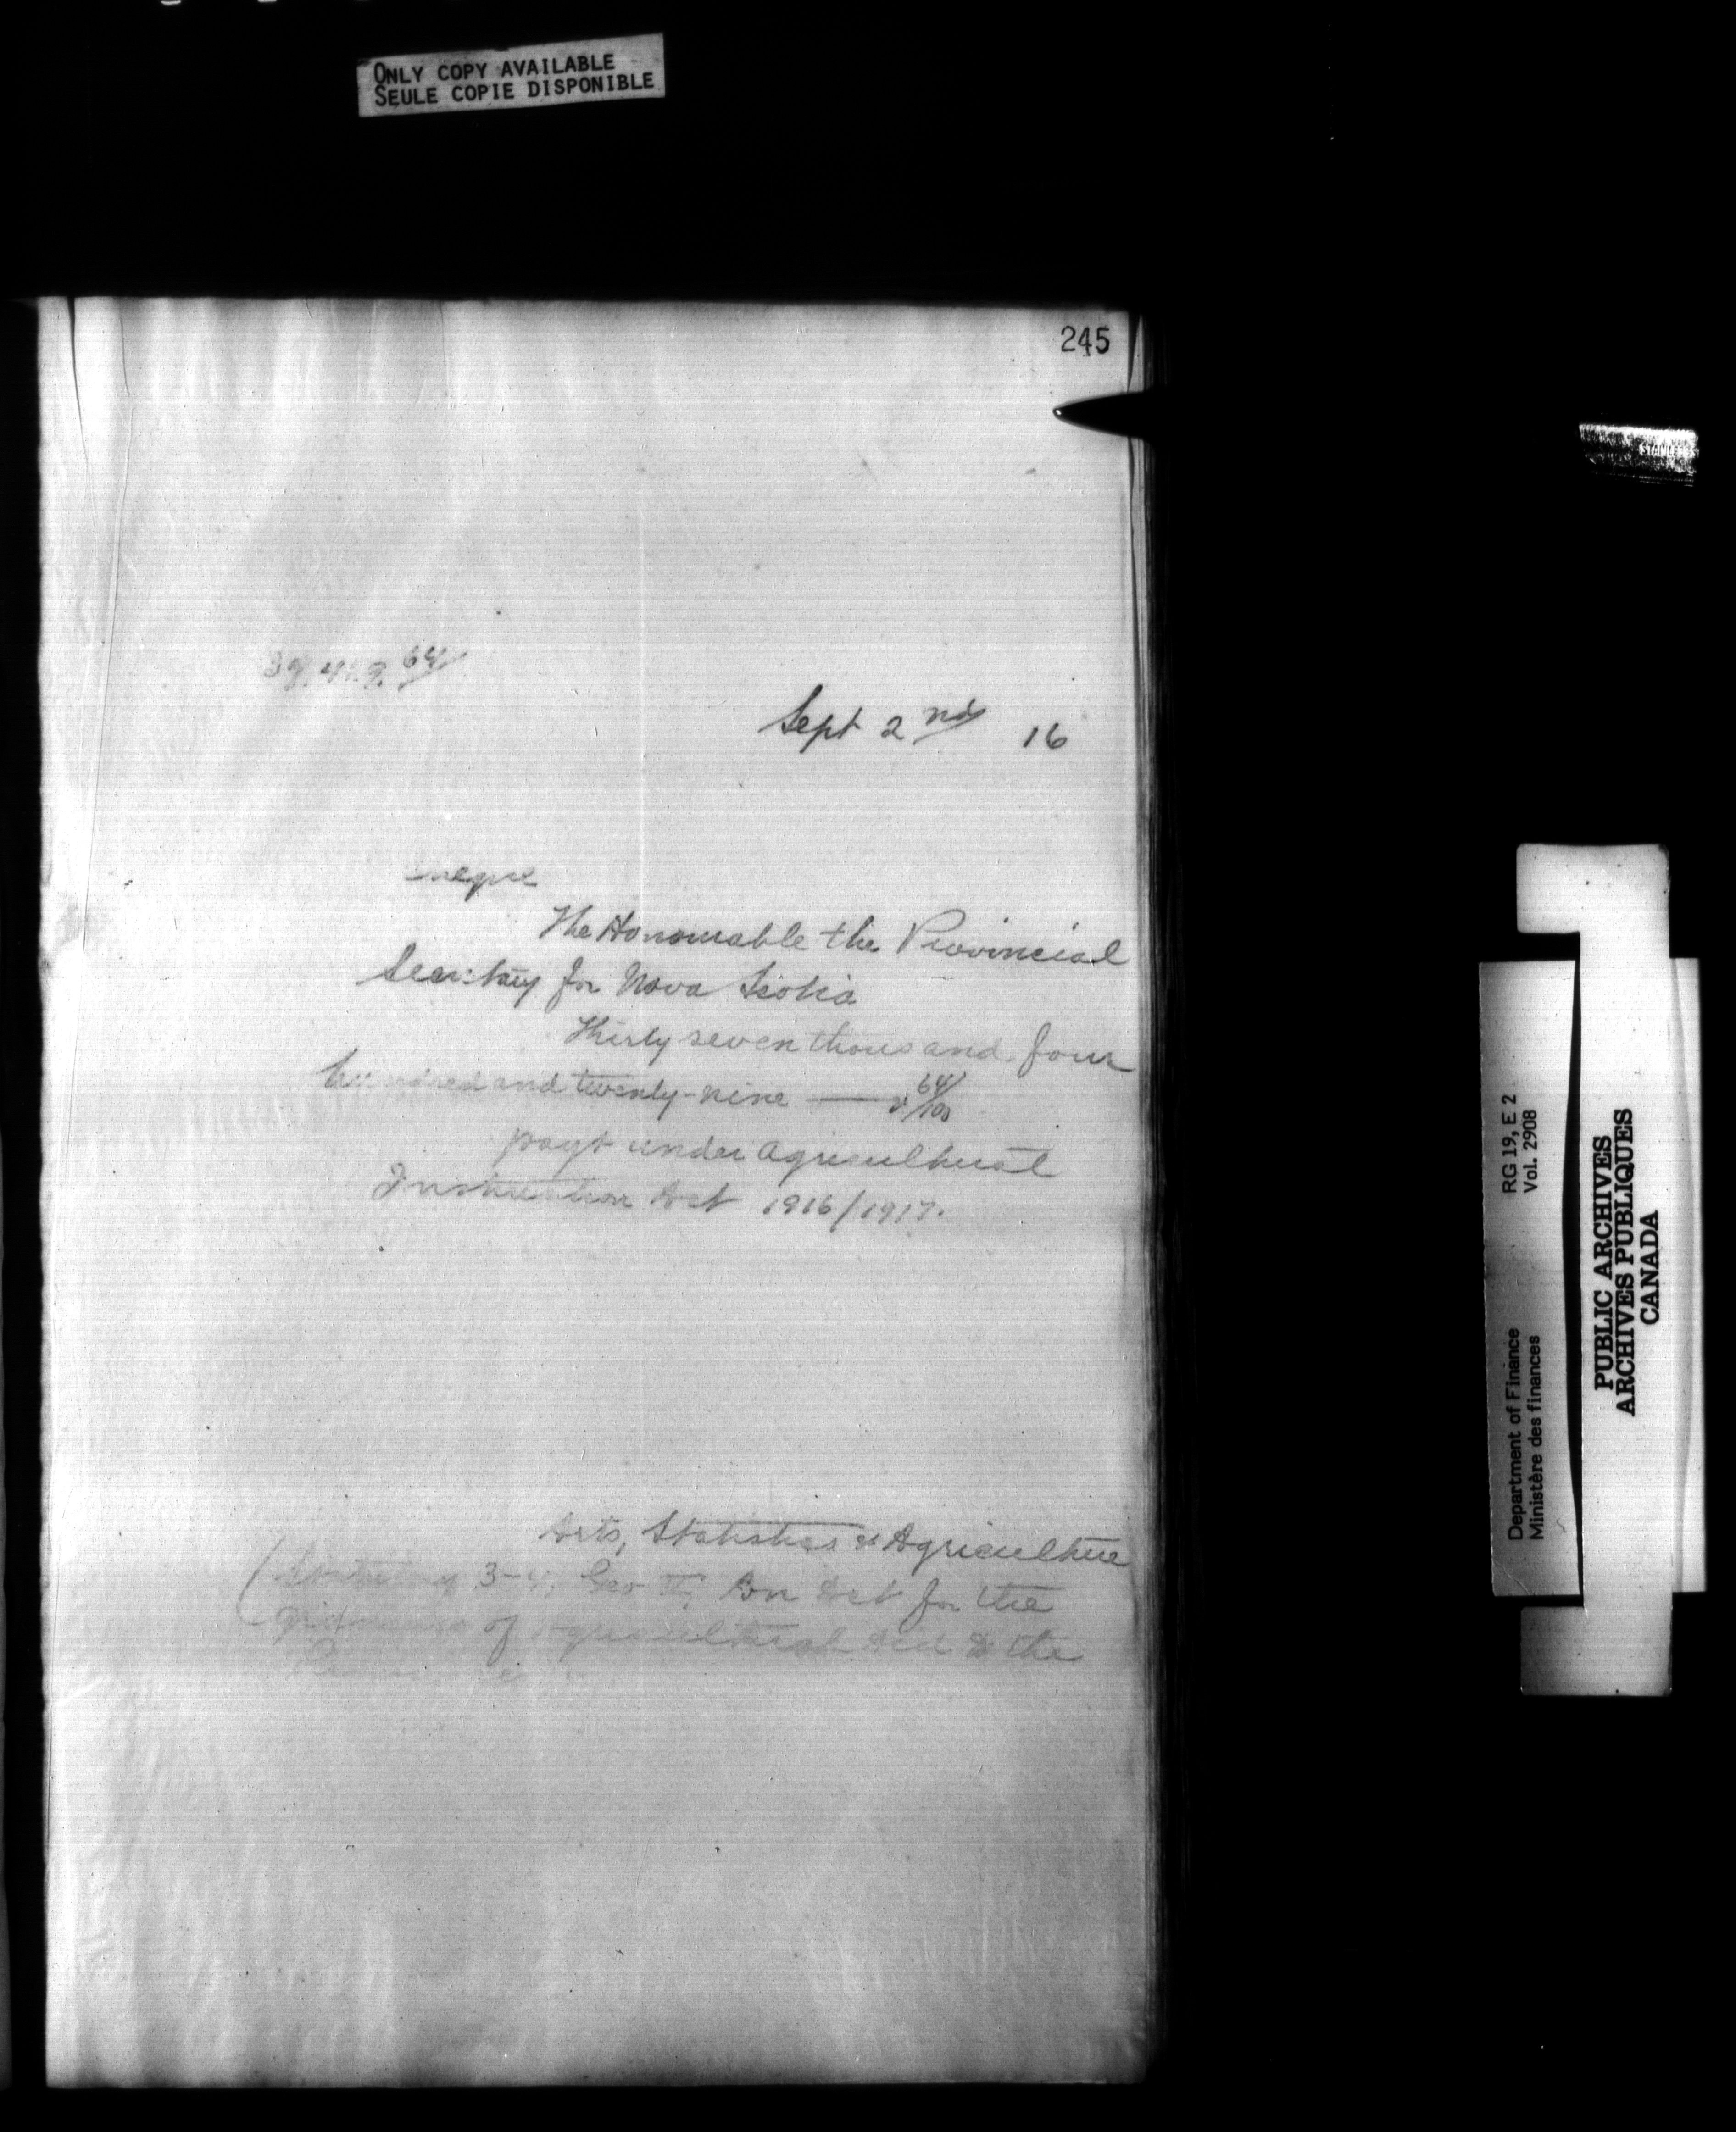 ONLY COPY AVAILABLE
SEULE COPIE DISPONIBLE
245
64
Sept 2nd 16
The Honourable the Provincial
Secretary for Nova Scotia
Thirty seven thousand four
hundred and twenty-nine — 64/100
payt under Agricultural
Instruction Act 1916/1917.
Arts, Statistics & Agriculture
( 3-4, Geo V, An Act for the
of Agricultural Aid to the
STAINLESS
RG 19, E 2
Vol. 2908
Department of Finance
Ministère des finances
PUBLIC ARCHIVES
ARCHIVES PUBLIQUES
CANADA